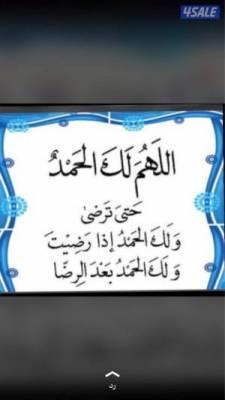 4SALE
اللهُمَ لَكَ الحَمْدُ
حَتىَ تَرضىٰ
وَ لكَ الحَمْدُ إذا رَضِيْتَ
وَ لكَ الحَمْدُ بَعْدَ الرِضَّا
رد